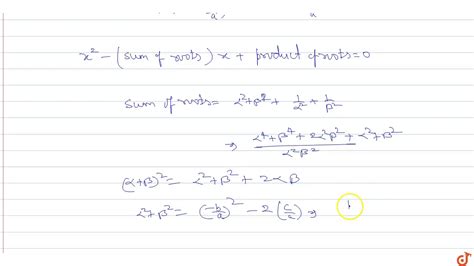 a, a
x² - (sum of roots) x + product of roots = 0
sum of roots = α² + β² + 1/α² + 1/β²
⇒ (α⁴ + β⁴ + 2α²β² + α² + β²)/(α²β²)
(α+β)² = α² + β² + 2αβ
α² + β² = (-b/a)² - 2(c/a) ⇒